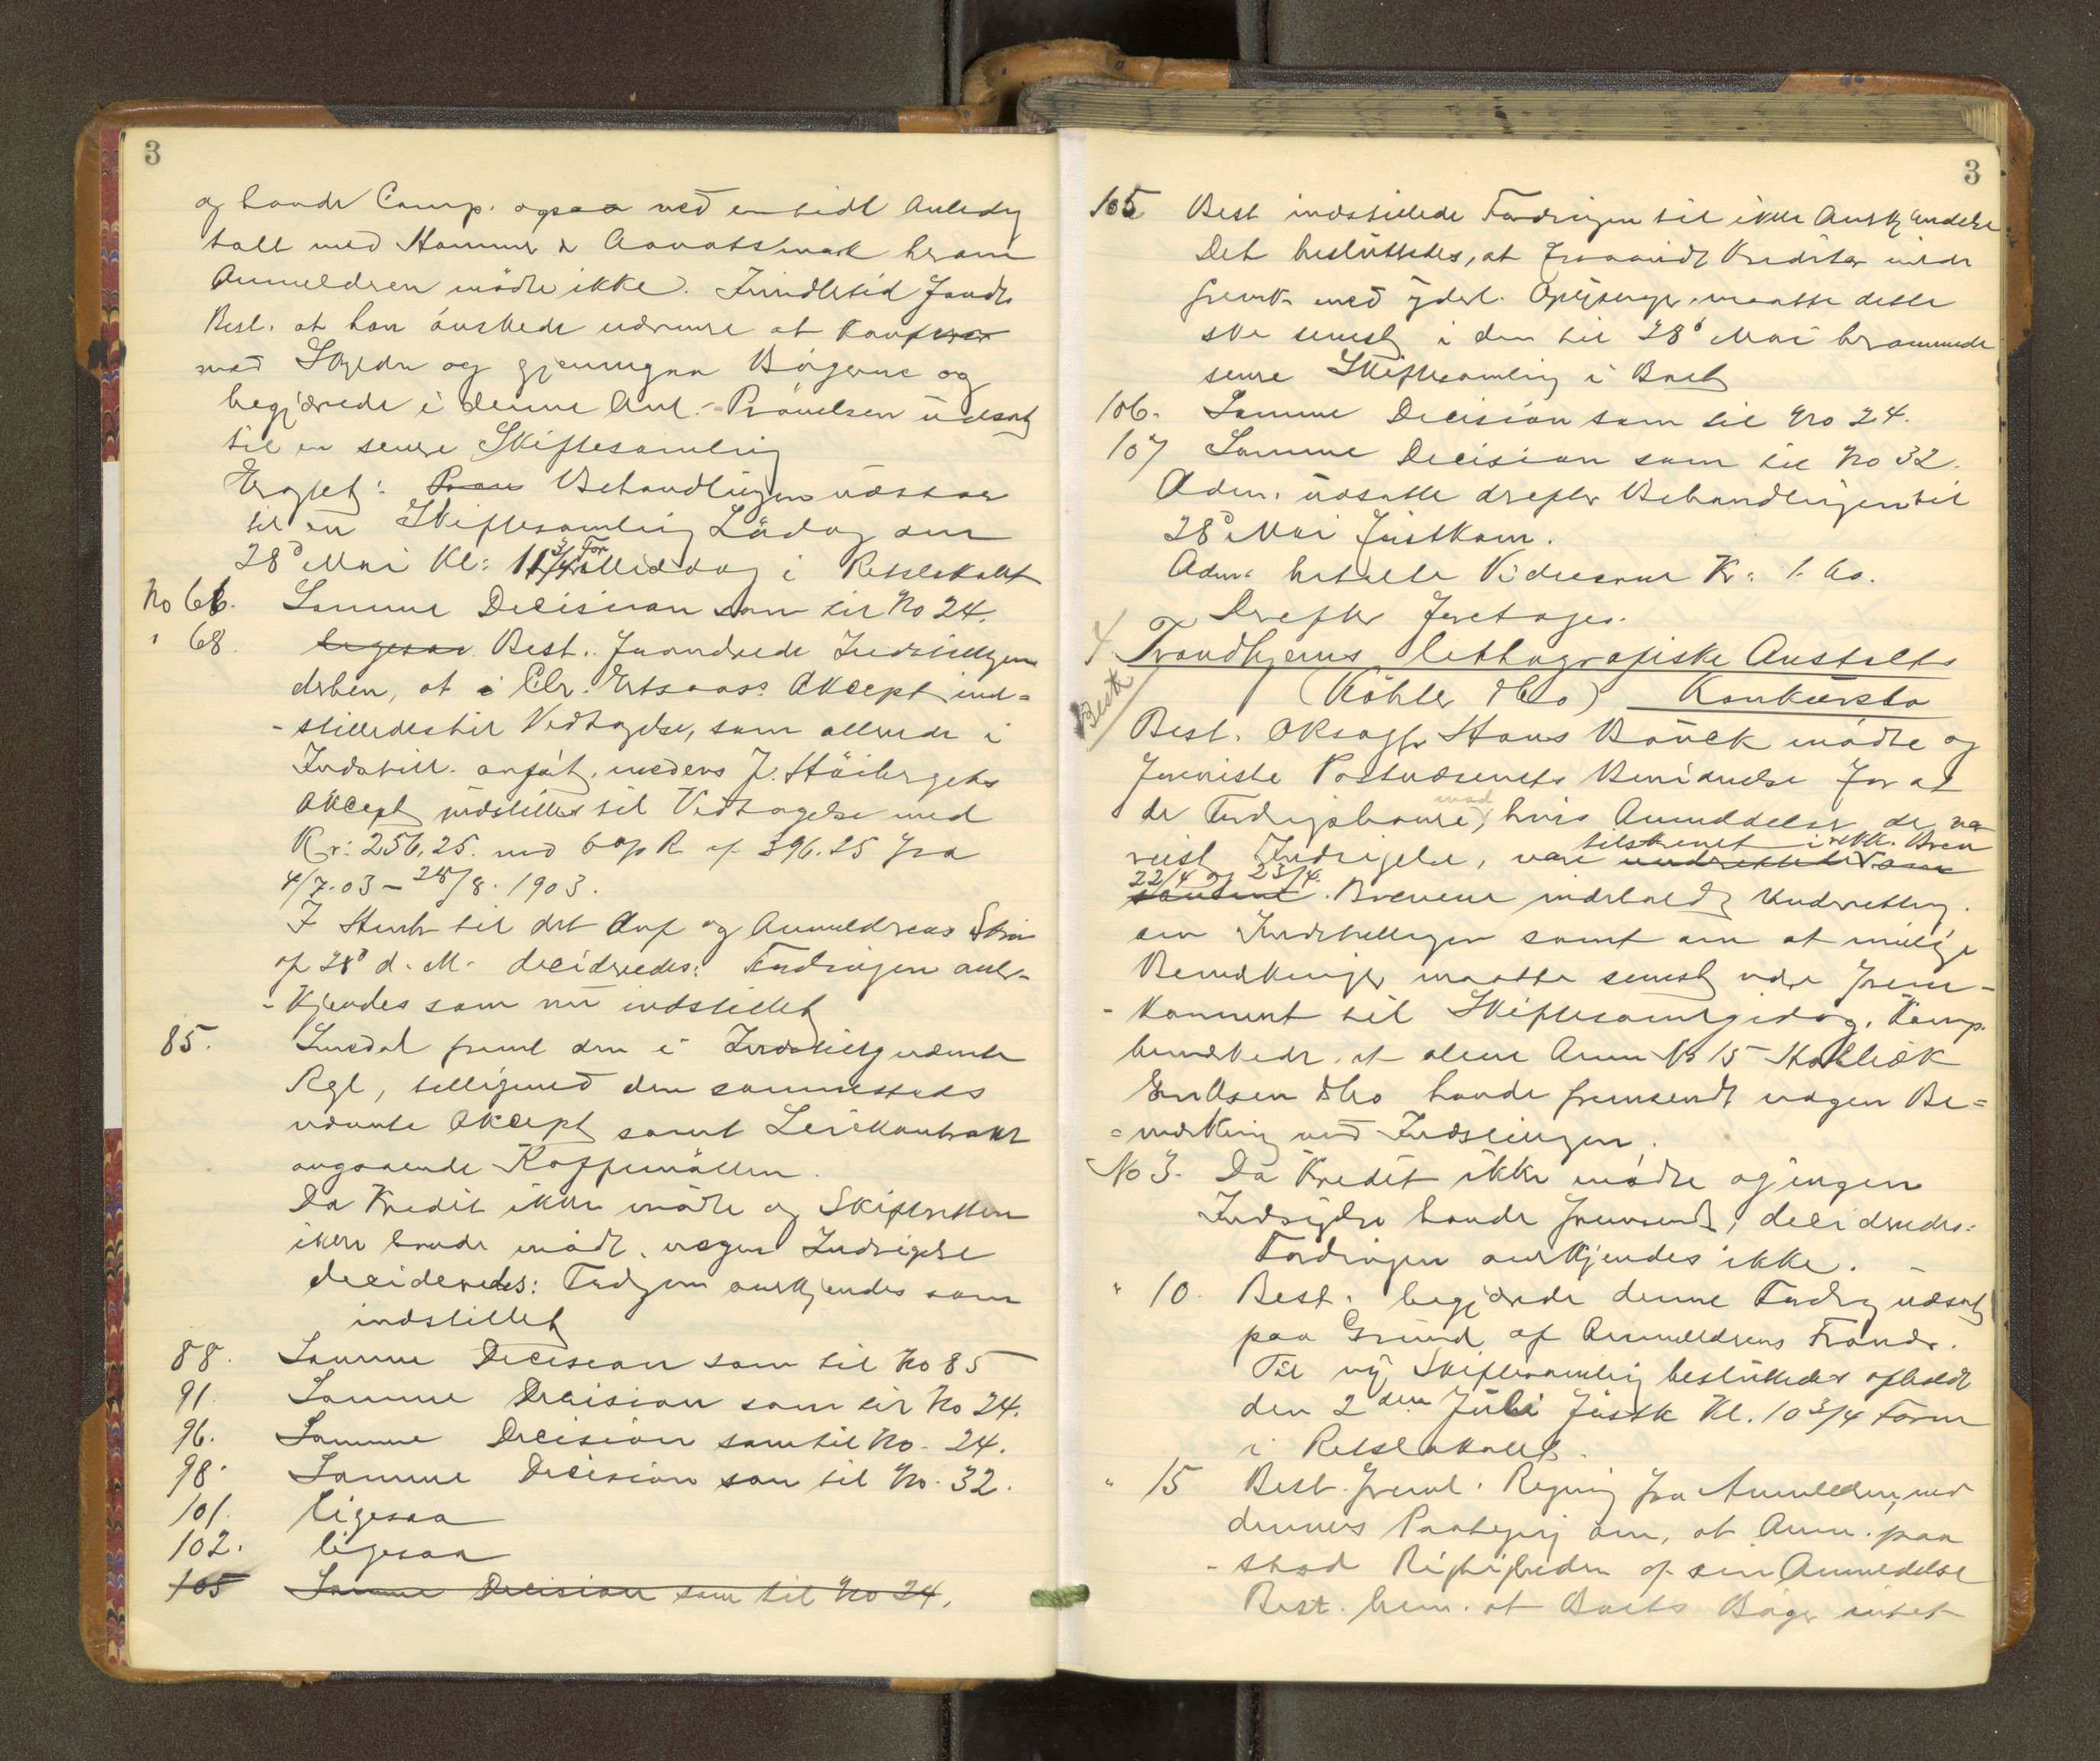 3
og havde Comp. ogsaa ved en tidl Anledn
talt med Hammer & Aavatsmark herom
Anmelderen mødte ikke. Imidlertid
Best. at han ønskede nærmere at konferere
med Skyldn og gjennemgaa Bøgerne og
begjærede i denne Anl. Prøvelsen udsat
til en senere Skiftesamling
Eragtet: Behandlingen udstaar
til en Skiftesamling Lørdag den
28d Mai Kl: 11 3/4 Formiddag i Retslokalet
No 66. Samme Decision som til No 24.
" 68. ligesaa Best. forandrede Indstillingen
derhen, at Accept ind=
-stilledes til Vedtagelse, som allerede i
Indstill. anført, medens J. Höibergets
Accept indstilles til Vedtagelse med
Kr: 256.25. med 6 % R af 396.25 fra
4/7.03 - 28/8. 1903.
I Henh til det Anf og Anmelderens Skriv
af 28d d. M. decideredes: Fordringen aner-
-kjendes som nu indstillet
85. frem den i Indstilling nævnte
Rgl, tilligemed den sammesteds
nævnte Accept samt Leiekontrakt
angaaende Kaffemøllen.
Da Kredit ikke mødte og Skifteretten
ikke havde mødt nogen Indsigelse
decideredes: Fordrgen anerkjendes som
indstillet
88. Samme Decision som til No 85
91. Samme Decision som til No 24.
96. Samme Decision som til No. 24.
98. Samme Decision som til No. 32.
101. ligesaa
102. ligesaa
105 Samme Decision som til No 24.
3
105 Best indstillede Fordringen til ikke Anerkjendelse
Det besluttedes, at forsaavidt Kreditor vilde
fremk med yderl. Oplysninger, maatte dette
ske senest i den til 28d Mai berammede
senere Skiftesamling i Boet
106. Samme Decision som til No 24.
107 Samme Decision som til No 32.
Adm. udsatte derefter Behandlingen til
28d Mai førstkom.
Adm. betalte Vidnerne Kr: 1.60.
Derefter foretoges.
4 Trondhjems lithografiske Anstalts
(Köhler & Co) Konkursbo
Best
Best. ORsagfr Hans Bauck mødte og
foreviste Postvæsenets Bevidnelse for at
de Fordringshavere, mod hvis Anmeldelser der var
reist Indsigelse, var tilskrevet i rekk. Brev
22/4 og 23/4. Brevene indeholdt Underretning
om Indstillingen samt om at mulige
Bemærkninger maatte senest være frem-
-kommet til Skiftesamlingen idag. Komp.
bemærkede, at alene Anm No 15
& Co havde fremsendt nogen Be=
=mærkning ved Indstillingen.
No 3. Da Kredit ikke mødte og ingen
Indsigelse havde fremsendt, decideredes:
Fordringen anerkjendes ikke.
" 10. Best. begjærede denne Fordrg udsat
paa Grund af Anmelderens Fravær.
Til ny Skiftesamling besluttedes afholdt
den 2den Juli førstk Kl. 10 3/4 Form
i Retslokalet.
" 15 Best. freml. Regning fra Anmelderen, med
dennes Paategning om, at Anm. paa
-stod Rigtigheden af sin Anmeldelse
Best. bem. at Boets Bøger intet